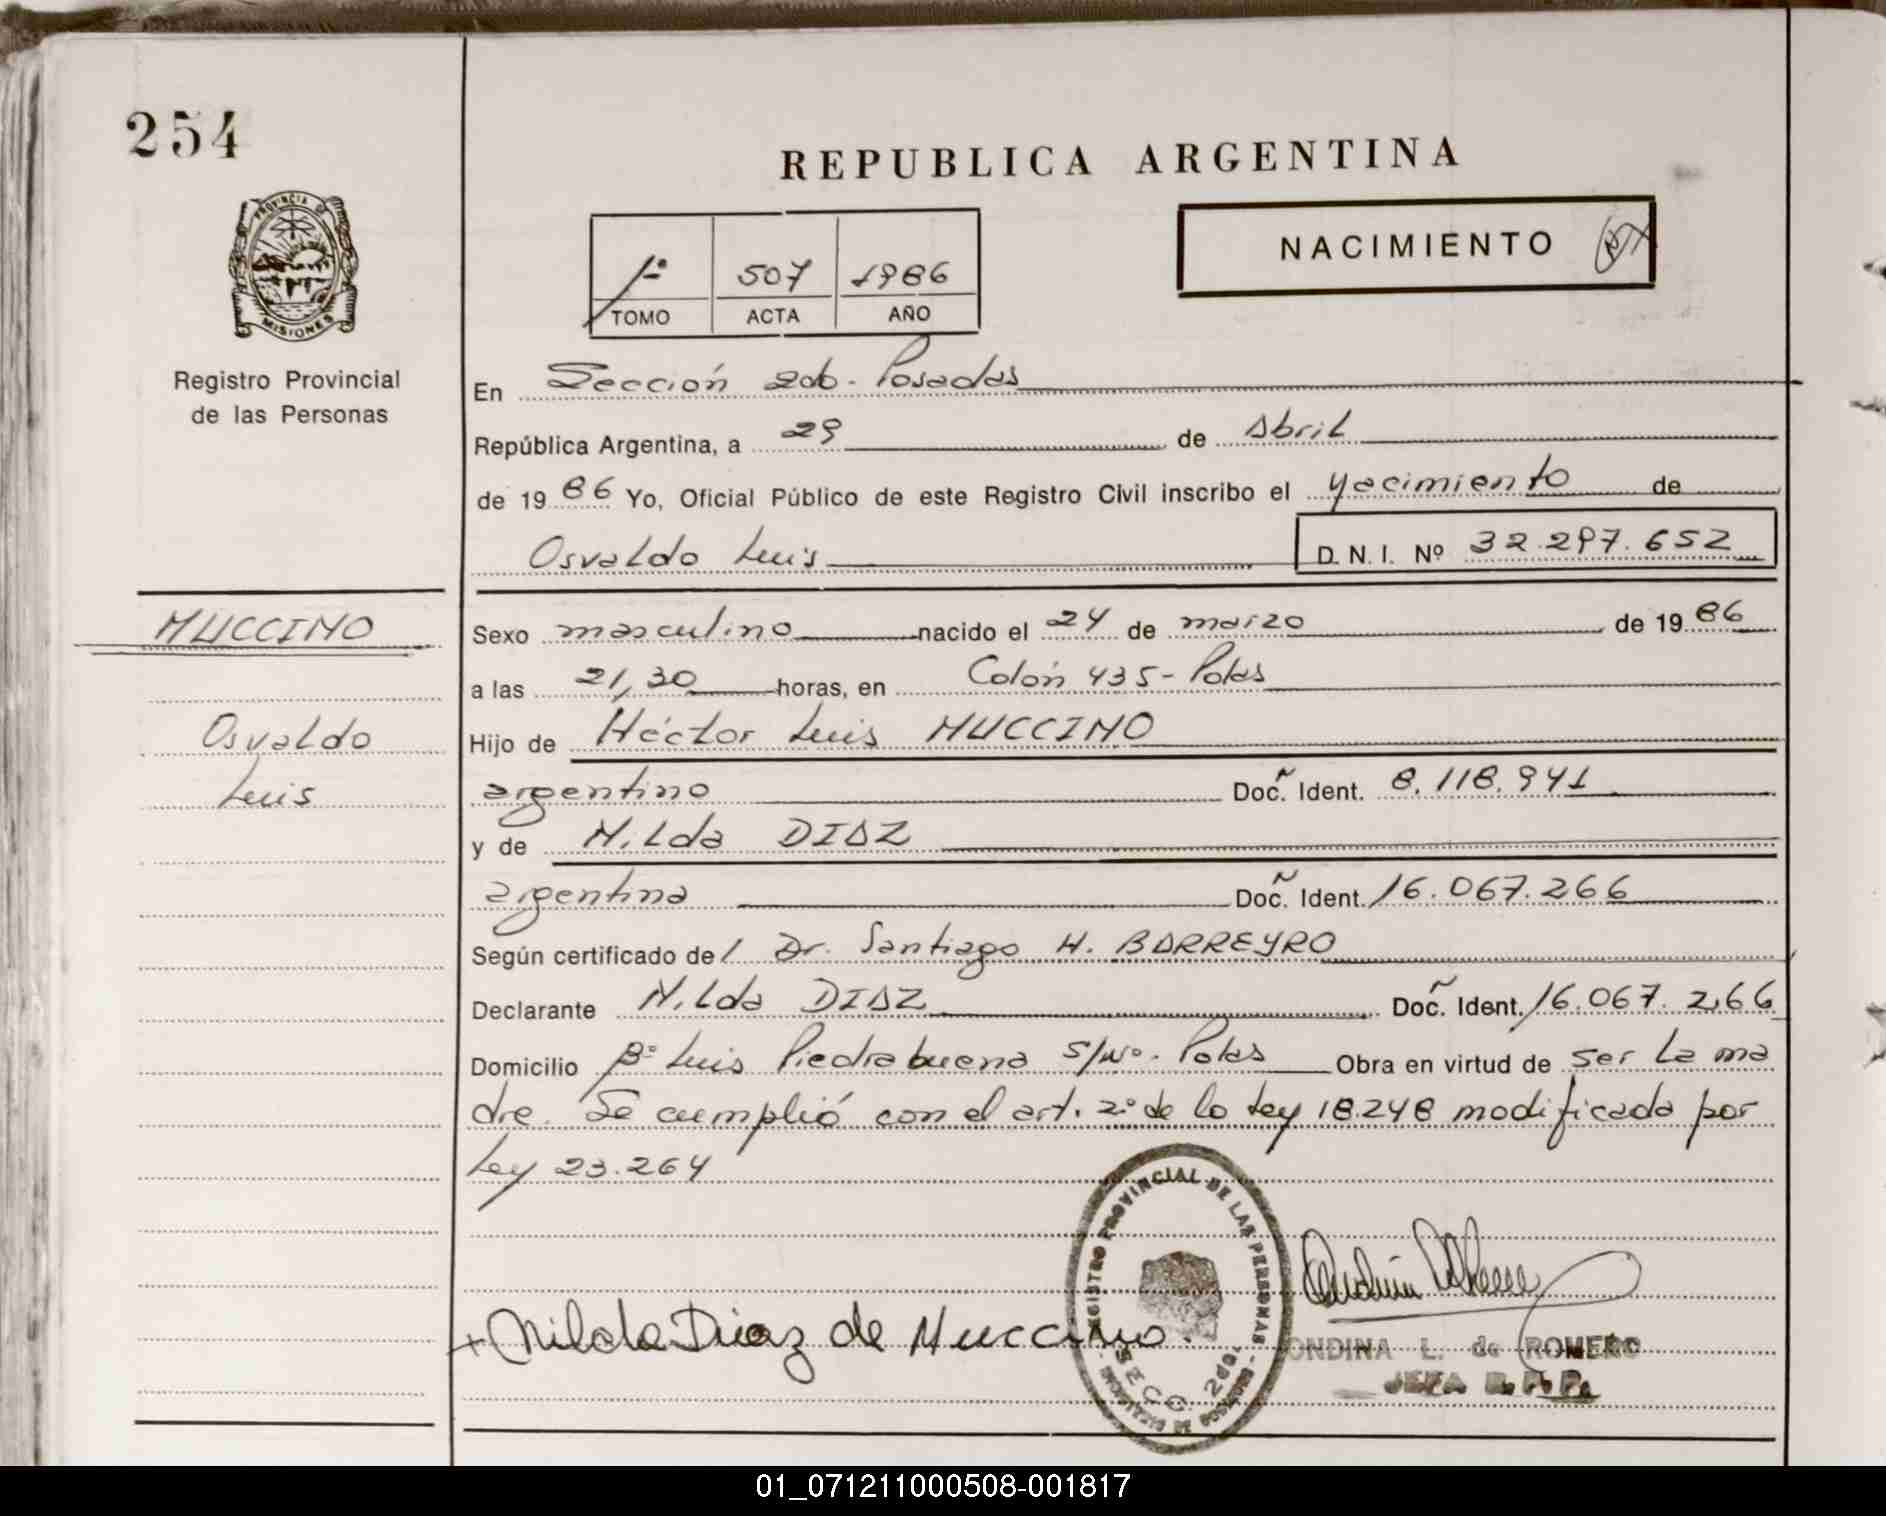 254
REPUBLICA ARGENTINA
PROVINCIA DE
MISIONES
Registro Provincial
de las Personas
1º 507 1986
TOMO ACTA AÑO
NACIMIENTO
En Sección 2da. Posadas
República Argentina, a 29 de Abril
de 1986 Yo, Oficial Público de este Registro Civil inscribo el Nacimiento de
Osvaldo Luis D. N. I. Nº 32.297.652
MUCCINO
Osvaldo
Luis
Sexo masculino nacido el 24 de marzo de 1986
a las 21,30 horas, en Colón 435 - Pdas
Hijo de Héctor Luis MUCCINO
argentino Doc. Ident. 8.118.941
y de Nilda DIAZ
argentina Doc. Ident. 16.067.266
Según certificado del Dr. Santiago H. BARREYRO
Declarante Nilda DIAZ Doc. Ident. 16.067.266
Domicilio Bº Luis Piedrabuena s/nº. Pdas Obra en virtud de ser la ma
dre. Se cumplió con el art. 2º de la Ley 18.248 modificada por
Ley 23.264
REGISTRO PROVINCIAL DE LAS PERSONAS
SECC. 2da.
MINISTERIO DE GOBIERNO
Nilda Diaz de Muccino.
ONDINA L. de ROMERO
JEFA R. P. P.
01_071211000508-001817